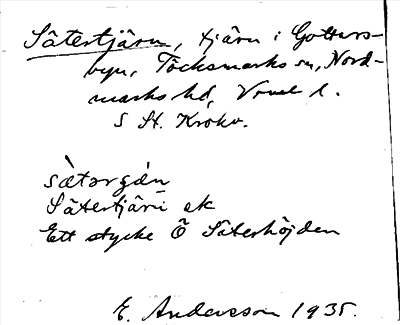 Sätertjärn, tjärn i Gottars-
byn, Töcksmarks sn, Nord-
marks hd, Värml l.
S St. Krokv.
sä̀tərɡə́n
Sätertjärn ek
Ett stycke Ö Säterhöjden
E. Andersson 1935.